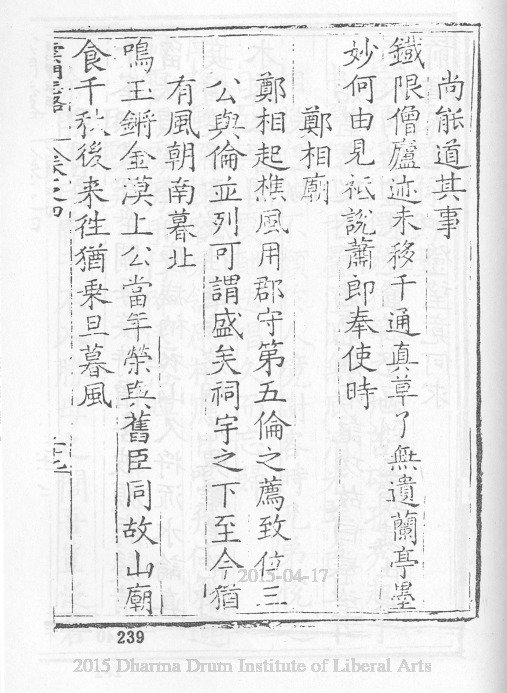 尚能道其事
鐵限僧廬迹未移千通真草了無遺蘭亭墨
妙何由見祗說蕭郎奉使時
鄭相廟
鄭相起樵風用郡守第五倫之薦致位三
公與倫並列可謂盛矣祠宇之下至今猶
有風朝南暮北
鳴玉鏘金漢上公當年榮與舊臣同故山廟
食千秋後来徃猶乗旦暮風
卷之四
2015-04-17
239
2015 Dharma Drum Institute of Liberal Arts